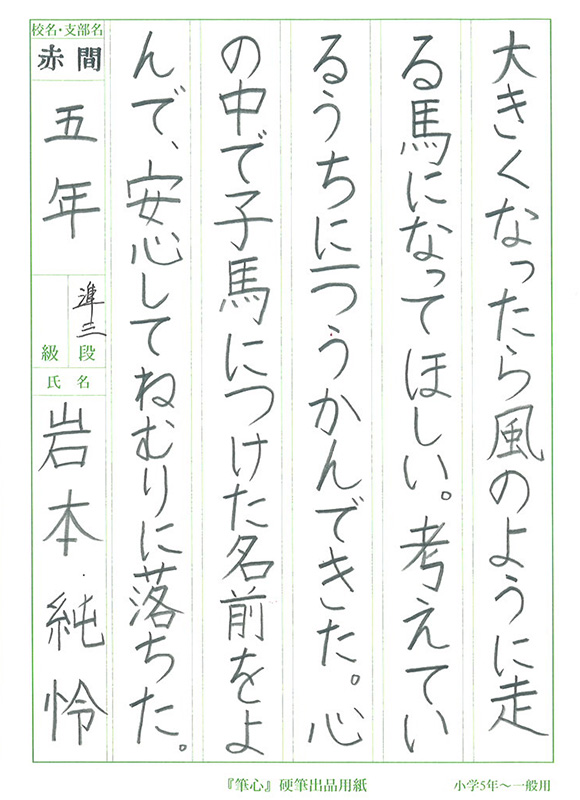 大きくなったら風のように走
る馬になってほしい。考えてい
るうちに一つうかんできた。心
の中で子馬につけた名前をよ
んで、安心してねむりに落ちた。
校名・支部名
赤間
五年
準三
級 段
氏名
岩本純怜
『筆心』硬筆出品用紙
小学5年〜一般用